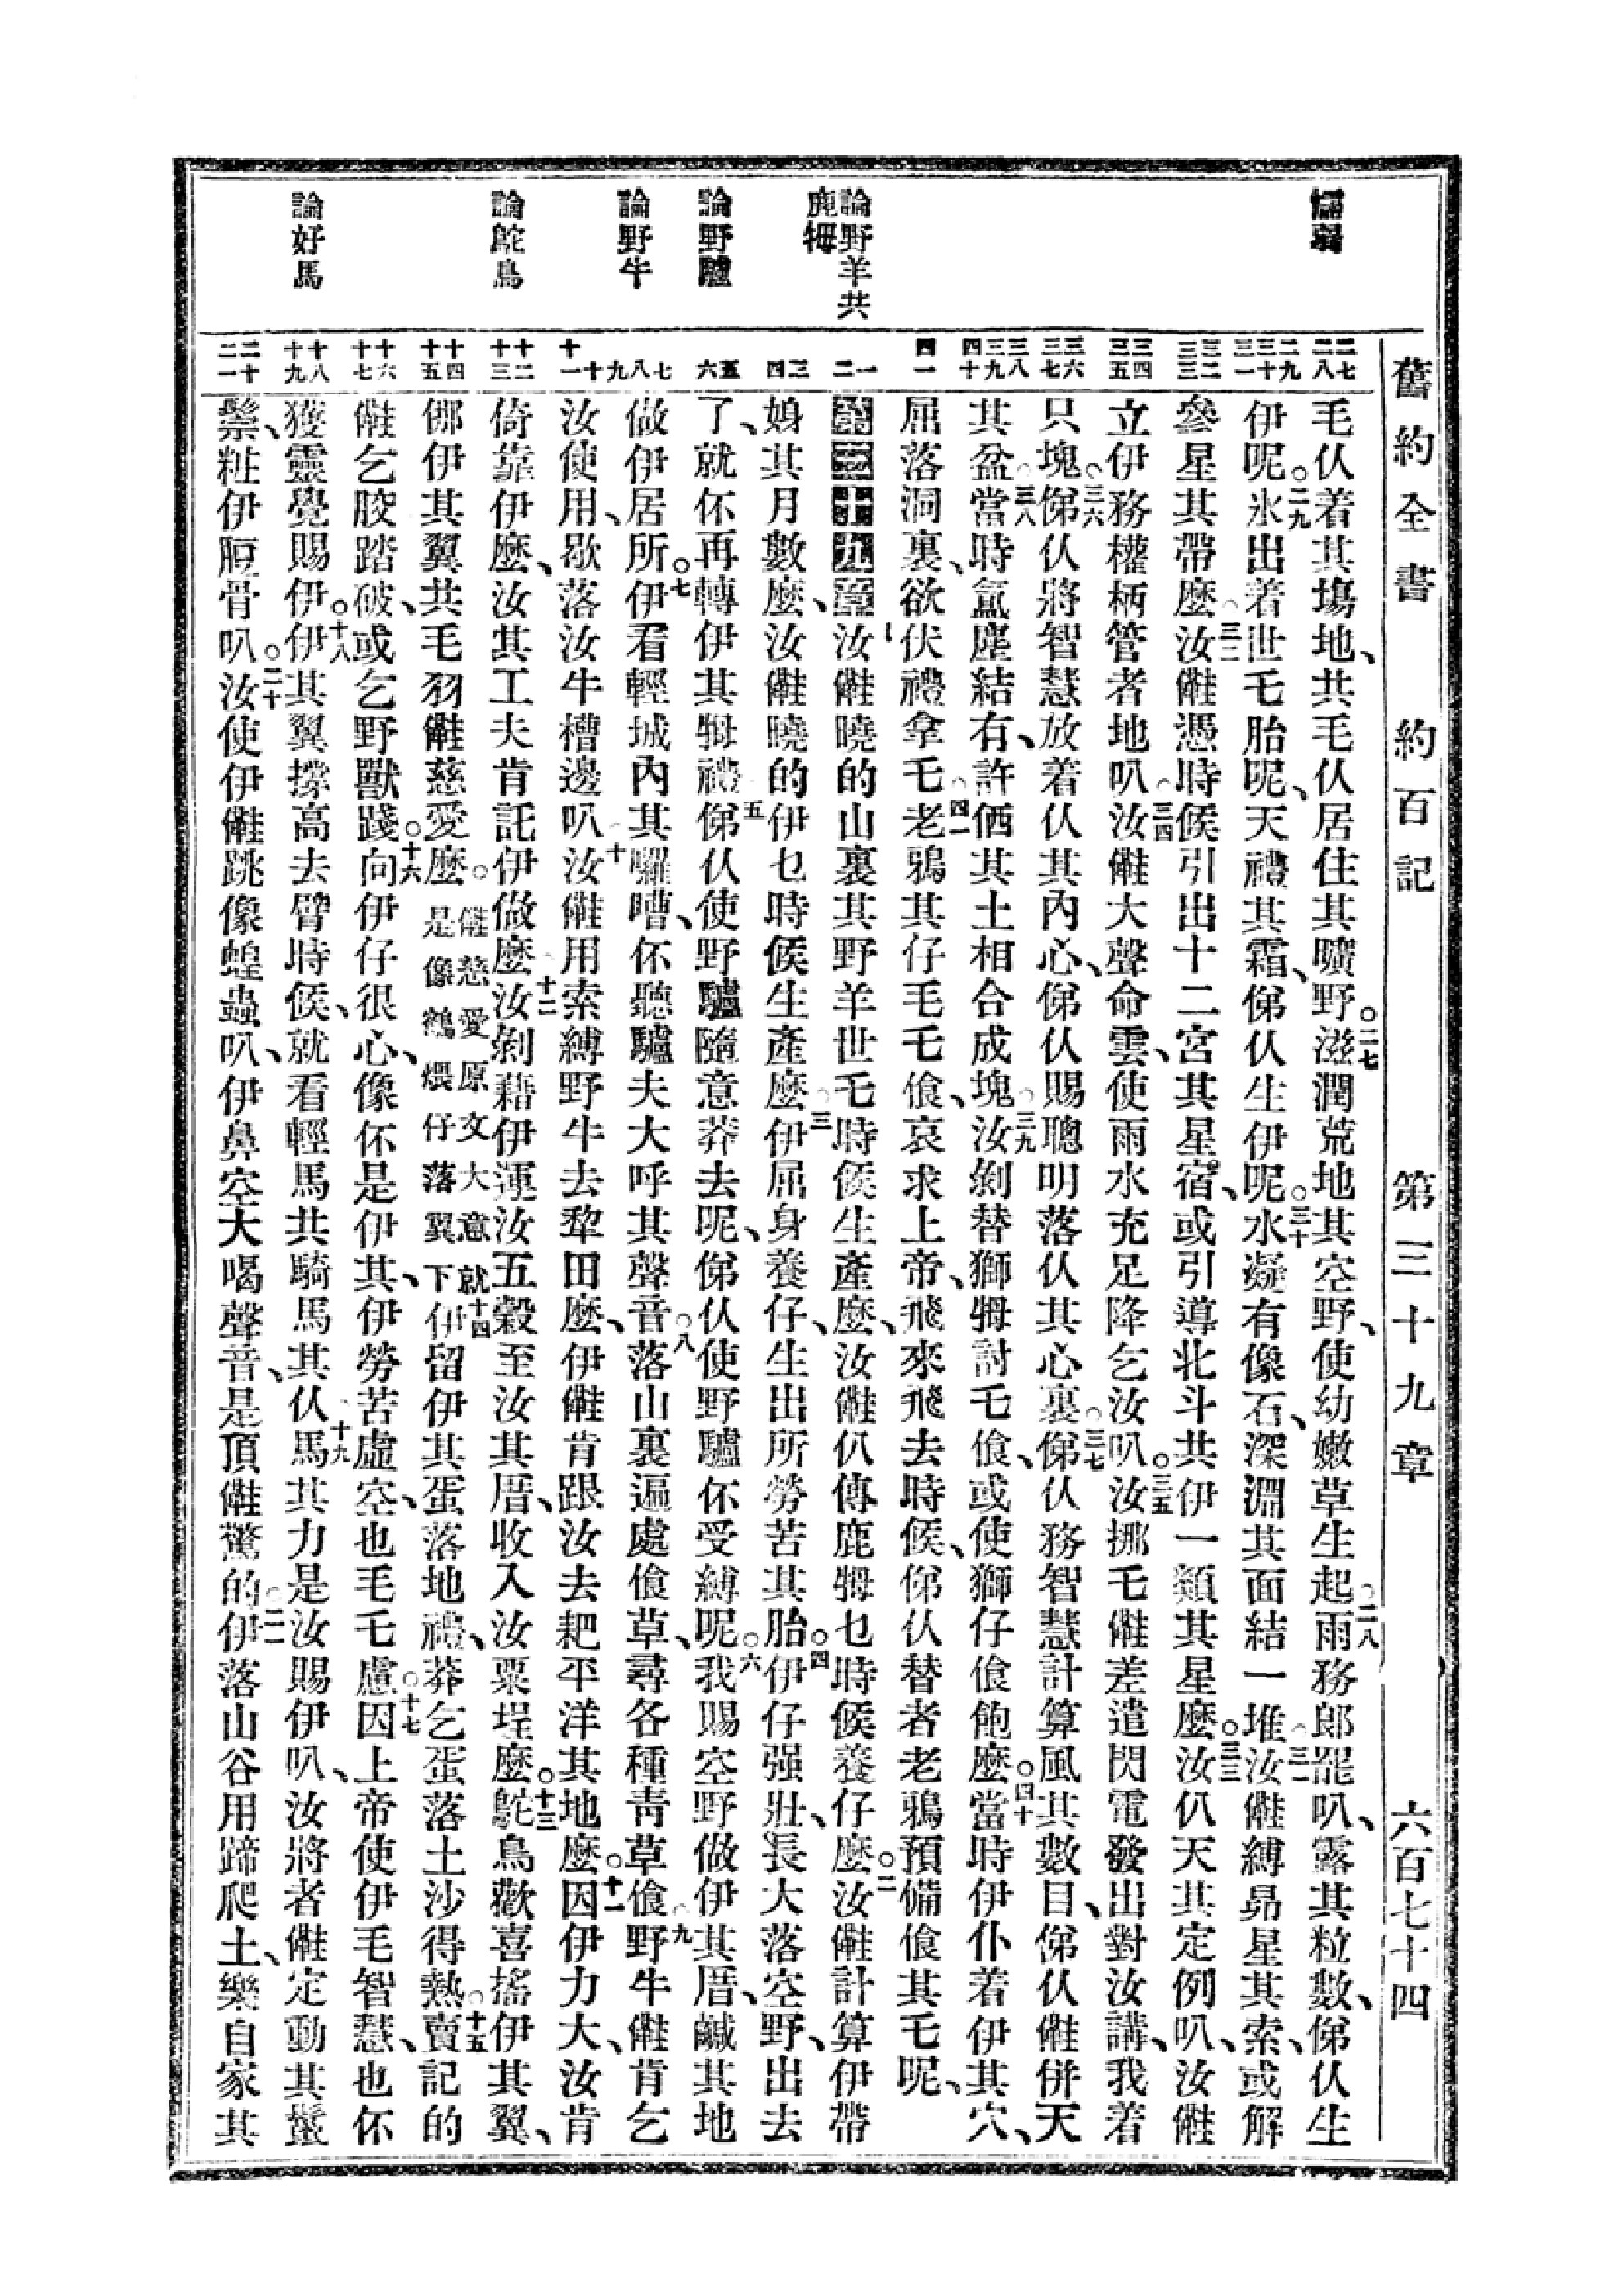 舊約全書 約百記 第三十九章 六百七十四
懦弱
論野羊共
鹿㹀
論野驢
論野牛
論鴕鳥
論好馬
二七 二八
二九 三十 三一
三二 三三
三四 三五
三六 三七
三八 三九 四十
四一
一 二
三 四
五 六
七 八 九
十 十一
十二 十三
十四 十五
十六 十七
十八 十九
二十 二一
毛仈着其塲地、共毛仈居住其曠野。二七滋潤荒地其空野、使幼嫩草生起。二八雨務郎罷叭、露其粒數、俤仈生
伊呢。二九氷出着世乇胎呢、天禮其霜、俤仈生伊呢。三十水凝有像石、深淵其面結一堆。三一汝𣍐縛昴星其索、或解
參星其帶麽。三二汝𣍐憑時候引出十二宮其星宿、或引導北斗共伊一類其星麽。三三汝仈天其定例叭、汝𣍐
立伊務權柄管者地叭。三四汝𣍐大聲命雲、使雨水充足降乞汝叭。三五汝挪乇𣍐差遣閃電發出對汝講、我着
只塊。三六俤仈將智慧放着仈其內心、俤仈賜聰明落仈其心裏。三七俤仈務智慧計算風其數目、俤仈𣍐併天
其盆。三八當時氳塵結有、許𠍁其土相合成塊。三九汝𠞩替獅㹀討乇飡、或使獅仔飡飽麽。四十當時伊仆着伊其穴、
屈落洞裏、欲伏禮拿乇。四一老鴉其仔毛乇飡、哀求上帝、飛來飛去時候、俤仈替者老鴉預備飡其乇呢、
第三十九章一汝𣍐曉的山裏其野羊世乇時候生產麽、汝𣍐仈傳鹿㹀乜時候養仔麽。二汝𣍐計算伊帶
㛛其月數麽、汝𣍐曉的伊乜時候生產麽。三伊屈身養仔、生出所勞苦其胎。四伊仔强壯、長大落空野、出去
了、就伓再轉伊其㹀禮。五俤仈使野驢隨意莽去呢、俤仈使野驢伓受縛呢。六我賜空野做伊其厝、鹹其地
做伊居所。七伊看輕城內其囉嘈、伓聽驢夫大呼其聲音。八落山裏遍處飡草、尋各種靑草飡。九野牛𣍐肯乞
汝使用、歇落汝牛槽邊叭。十汝𣍐用索縛野牛去犂田麽、伊𣍐肯跟汝去耙平洋其地麽。十一因伊力大、汝肯
倚靠伊麽、汝其工夫肯託伊做麽。十二汝𠞩藉伊運汝五穀至汝其厝、收入汝粟埕麽。十三鴕鳥歡喜搖伊其翼、
㑚伊其翼共毛羽𣍐慈愛麽。𣍐慈愛原文大意就是像鶴煨仔落翼下十四伊留伊其蛋落地禮、莽乞蛋落土沙得熱。十五賣記的
𣍐乞骹踏破、或乞野獸踐。十六向伊仔很心、像伓是伊其、伊勞苦虛空、也毛乇慮。十七因上帝使伊毛智慧、也伓
獲靈覺賜伊。十八伊其翼撐高去臂時候、就看輕馬共騎馬其仈。十九馬其力是汝賜伊叭、汝將者𣍐定動其鬃
鬃粧伊脰骨叭。二十汝使伊𣍐跳像蝗蟲叭、伊鼻空大喝聲音、是頂𣍐驚的。二一伊落山谷用蹄爬土、樂自家其